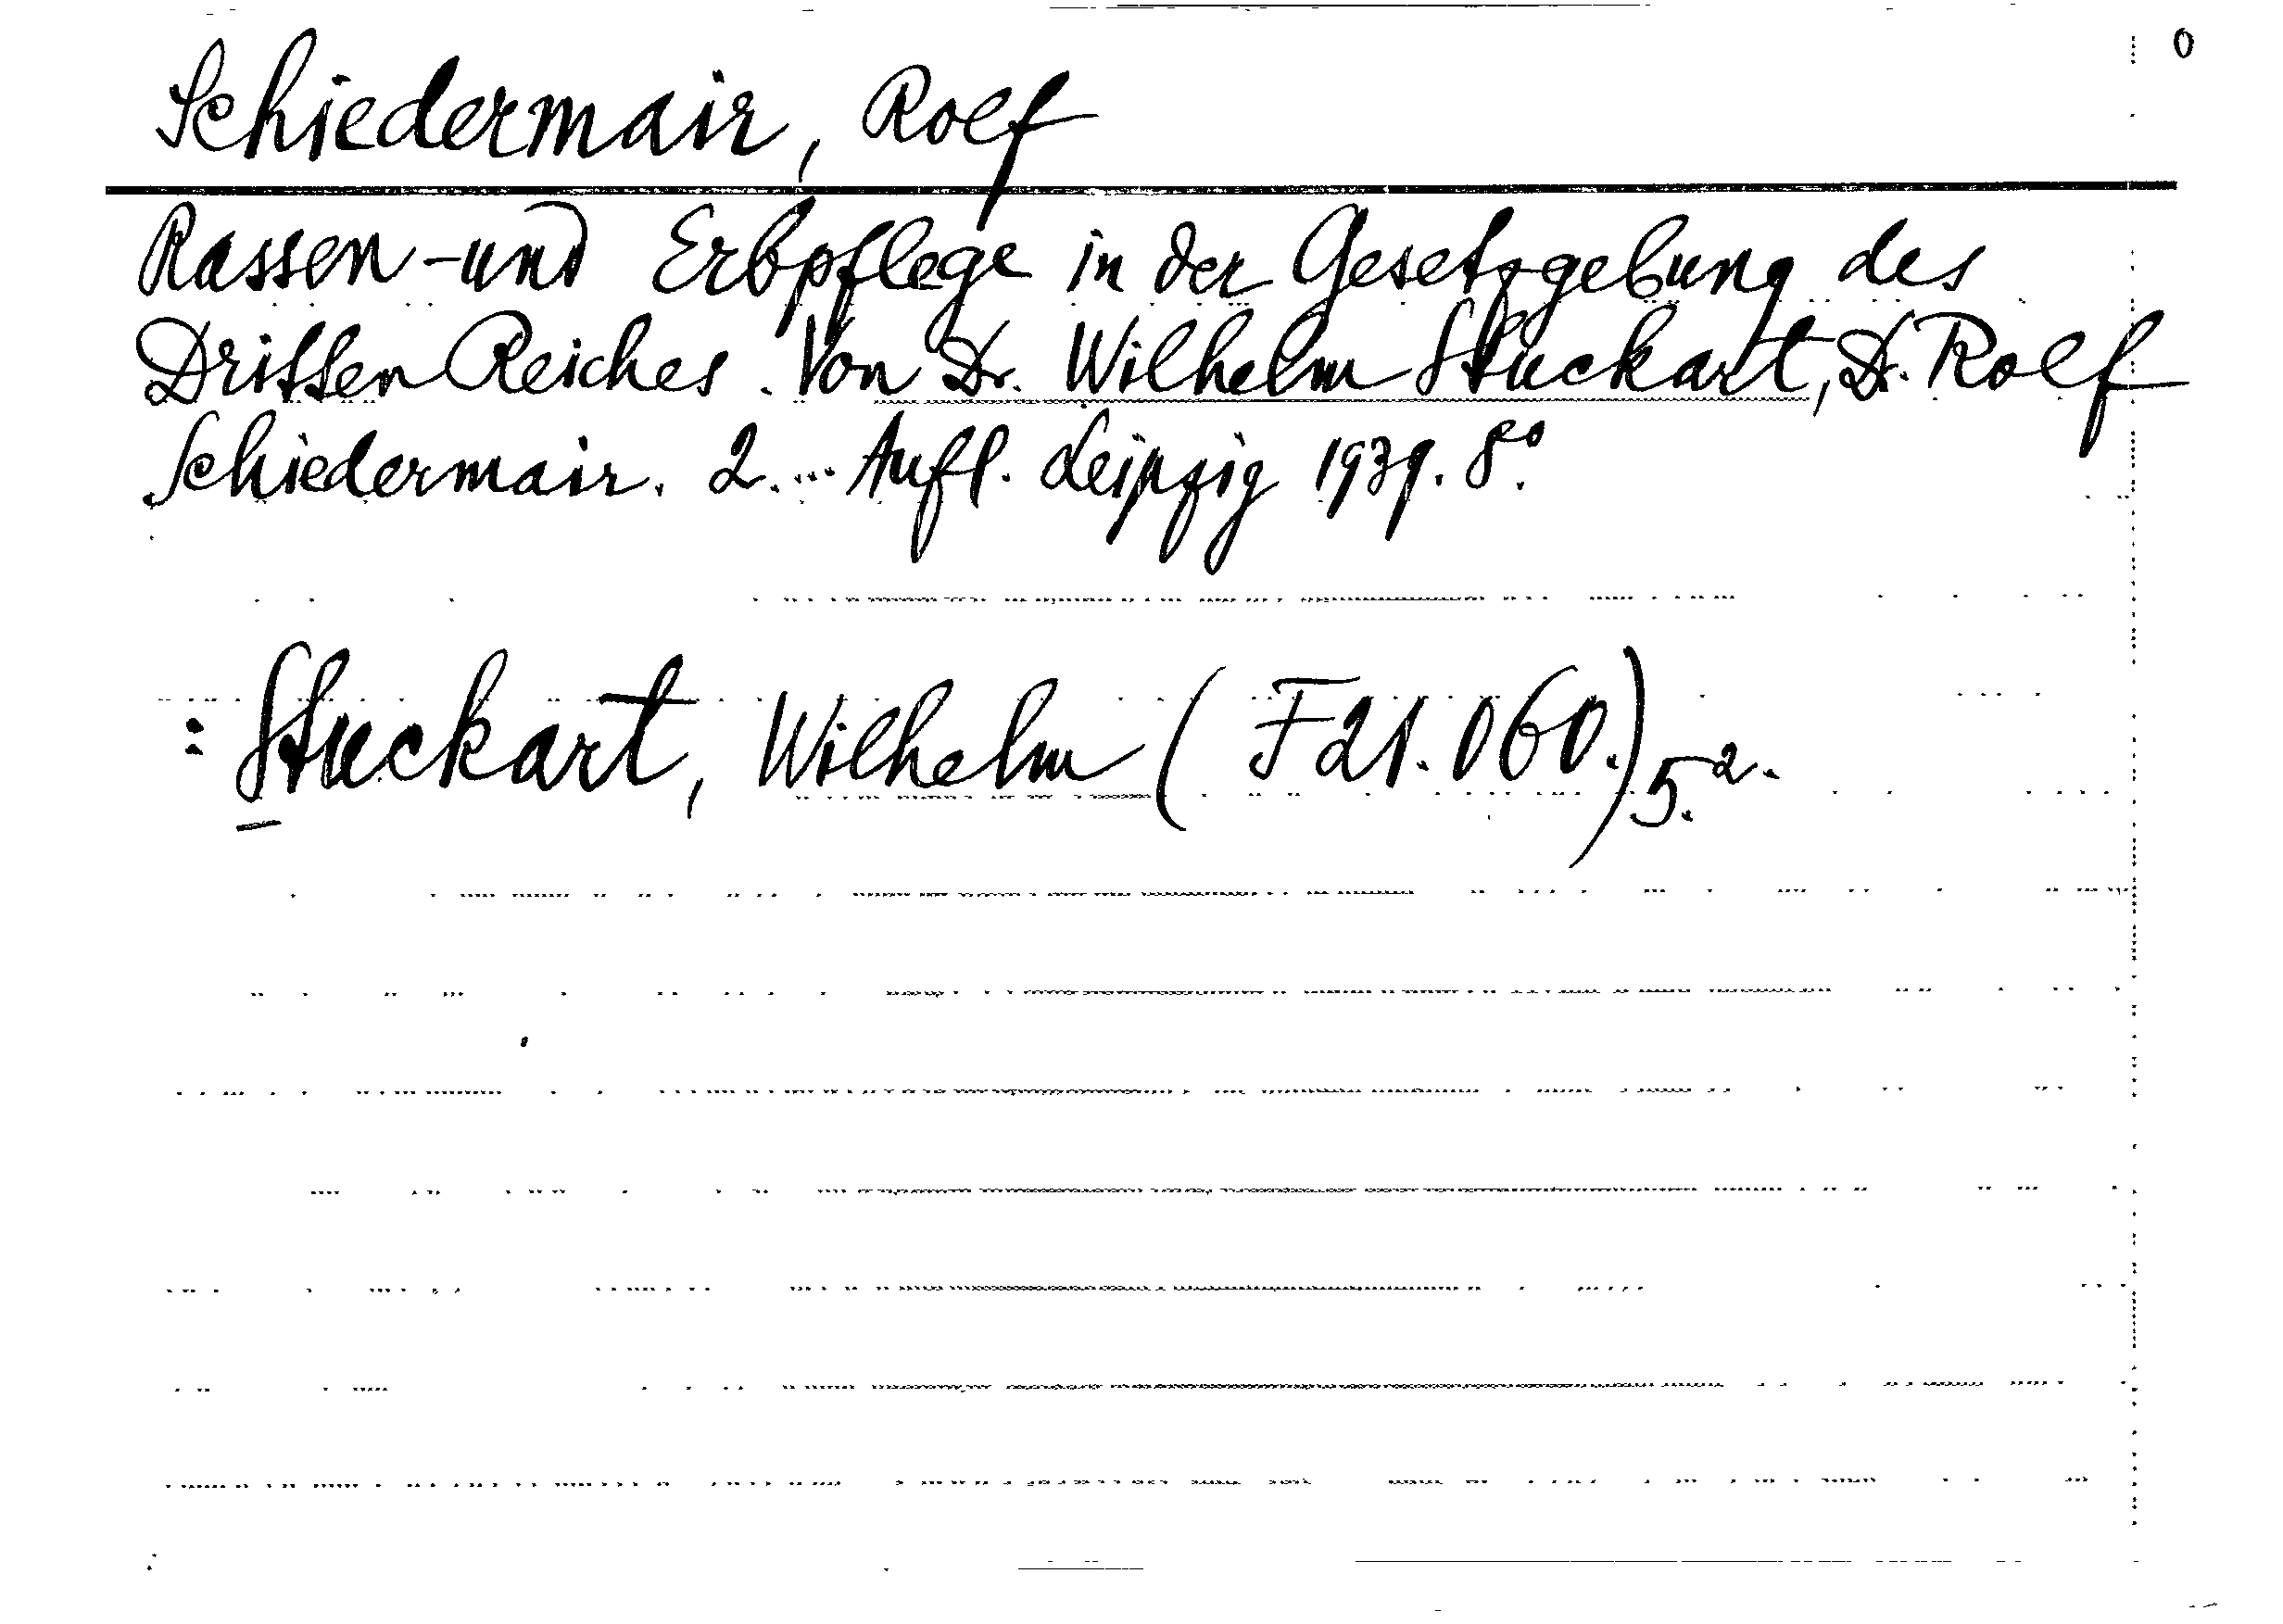 0
Schiedermair, Rolf
Rassen-und Erbpflege in der Gesetzgebung des
Dritten Reiches. Von Dr. Wilhelm Stuckart, Dr. Rolf
Schiedermair. 2. ... Aufl. Leipzig 1939. 8°.
: Stuckart, Wilhelm (F21.060.) 5.².